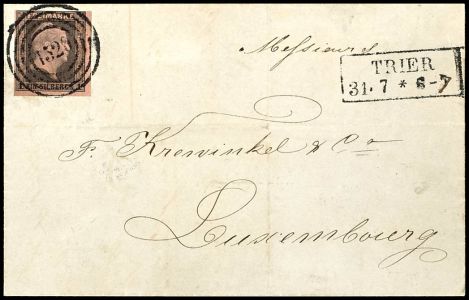 FREIMARKE
1523
1 EIN SILBERGR. 1
Messieurs
TRIER
31. 7 * 6-7
F. Krewinkel & Co
Luxembourg